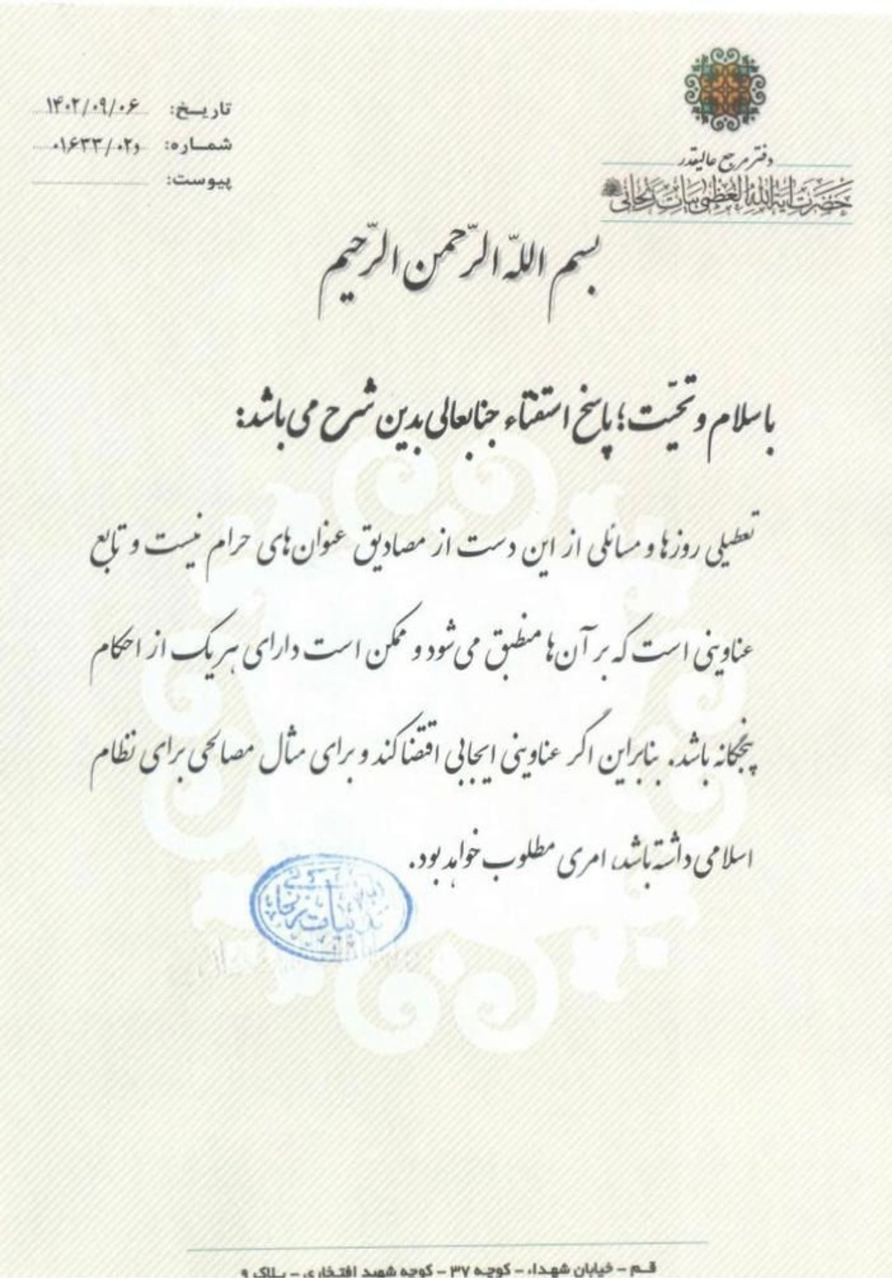 دفتر مرجع عالیقدر
حضرت آیة الله العظمی بیات زنجانی
تاریخ: ۱۴۰۲/۰۹/۰۶
شماره: ۰۱۶۳۳/۰۲و
پیوست:
بسم اللّه الرّحمن الرّحیم
با سلام و تحیّت؛ پاسخ استفتاء جنابعالی بدین شرح می باشد:
تعطیلی روزها و مسائلی از این دست از مصادیق عنوان های حرام نیست و تابع
عناوینی است که بر آن ها منطبق می شود و ممکن است دارای هر یک از احکام
پنجگانه باشد. بنابراین اگر عناوینی ایجابی اقتضا کند و برای مثال مصالحی برای نظام
اسلامی داشته باشد، امری مطلوب خواهد بود.
قـم – خیابان شهداء – کوچه ۳۷ – کوچه شهید افتخاری – پلاک ۹